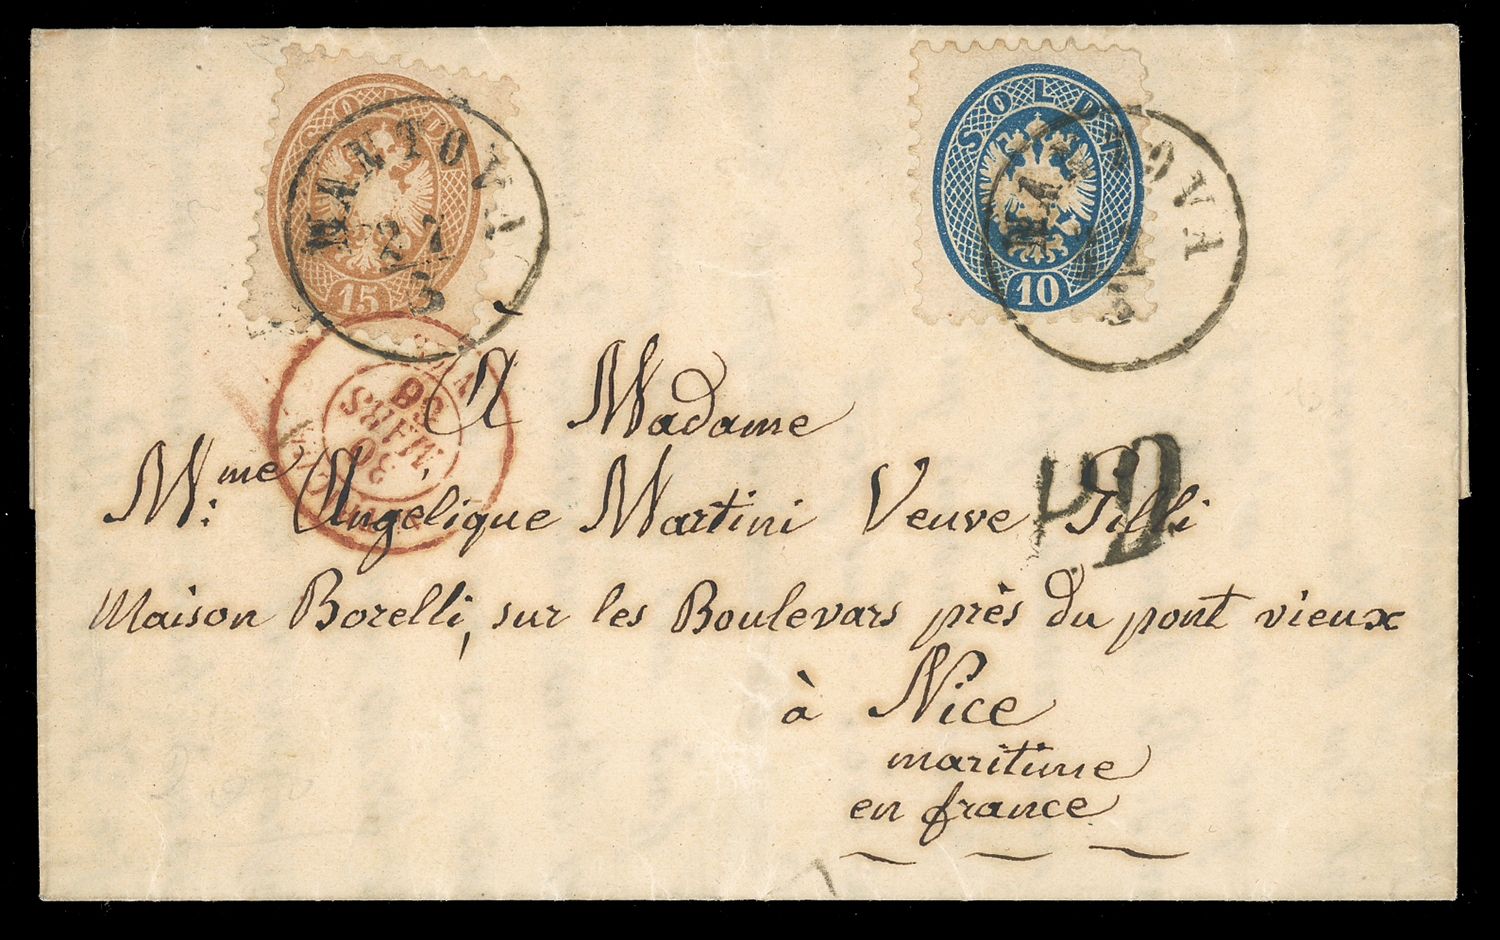 SOLDI
15
SOLDI
10
MANTOVA
27
3
MANTOVA
3
30
MARS
66
PD
A Madame
M.me Angélique Martini Veuve Tilli
Maison Borelli, sur les Boulevars près du pont vieux
à Nice
maritime
en france